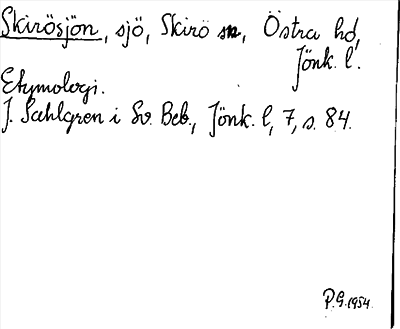 Skirösjön, sjö, Skirö sn, Östra hd,
Jönk. l.
Etymologi.
J. Sahlgren i Sv. Beb., Jönk. l, 7, s. 84.
P.G. 1954.